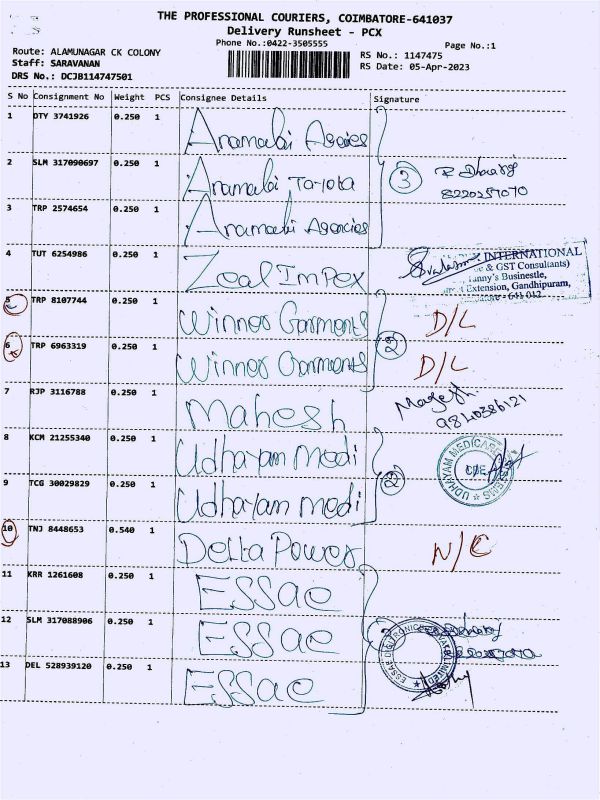 THE PROFESSIONAL COURIERS, COIMBATORE-641037
Delivery Runsheet - PCX
Phone No.:0422-3505555
Page No.:1
Route: ALAMUNAGAR CK COLONY
Staff: SARAVANAN
DRS No.: DCJB114747501
RS No.: 1147475
RS Date: 05-Apr-2023
S No Consignment No Weight PCS Consignee Details Signature
1 DTY 3741926 0.250 1 Anamalai Agencies
2 SLM 317090697 0.250 1 Anamalai Toyota
3 8220257070
3 TRP 2574654 0.250 1 Anamalai Agencies
4 TUT 6254986 0.250 1 Zeal Impex
INTERNATIONAL
& GST Consultants)
Businestle,
Extension, Gandhipuram,
- 641 012
5 TRP 8107744 0.250 1 Winner Garments D/L
2
6 TRP 6963319 0.250 1 Winner Garments D/L
7 RJP 3116788 0.250 1 Mahesh
8 KCM 21255340 0.250 1 Udhayam Medi
UDHAYAM MEDICARE SYSTEMS
CBE
2
9 TCG 30029829 0.250 1 Udhayam Medi
10 TNJ 8448653 0.540 1 Delta Power N/C
11 KRR 1261608 0.250 1 ESSae
12 SLM 317088906 0.250 1 ESSae
ESSAE DIGITRONICS PRIVATE LIMITED
13 DEL 528939120 0.250 1 ESSae